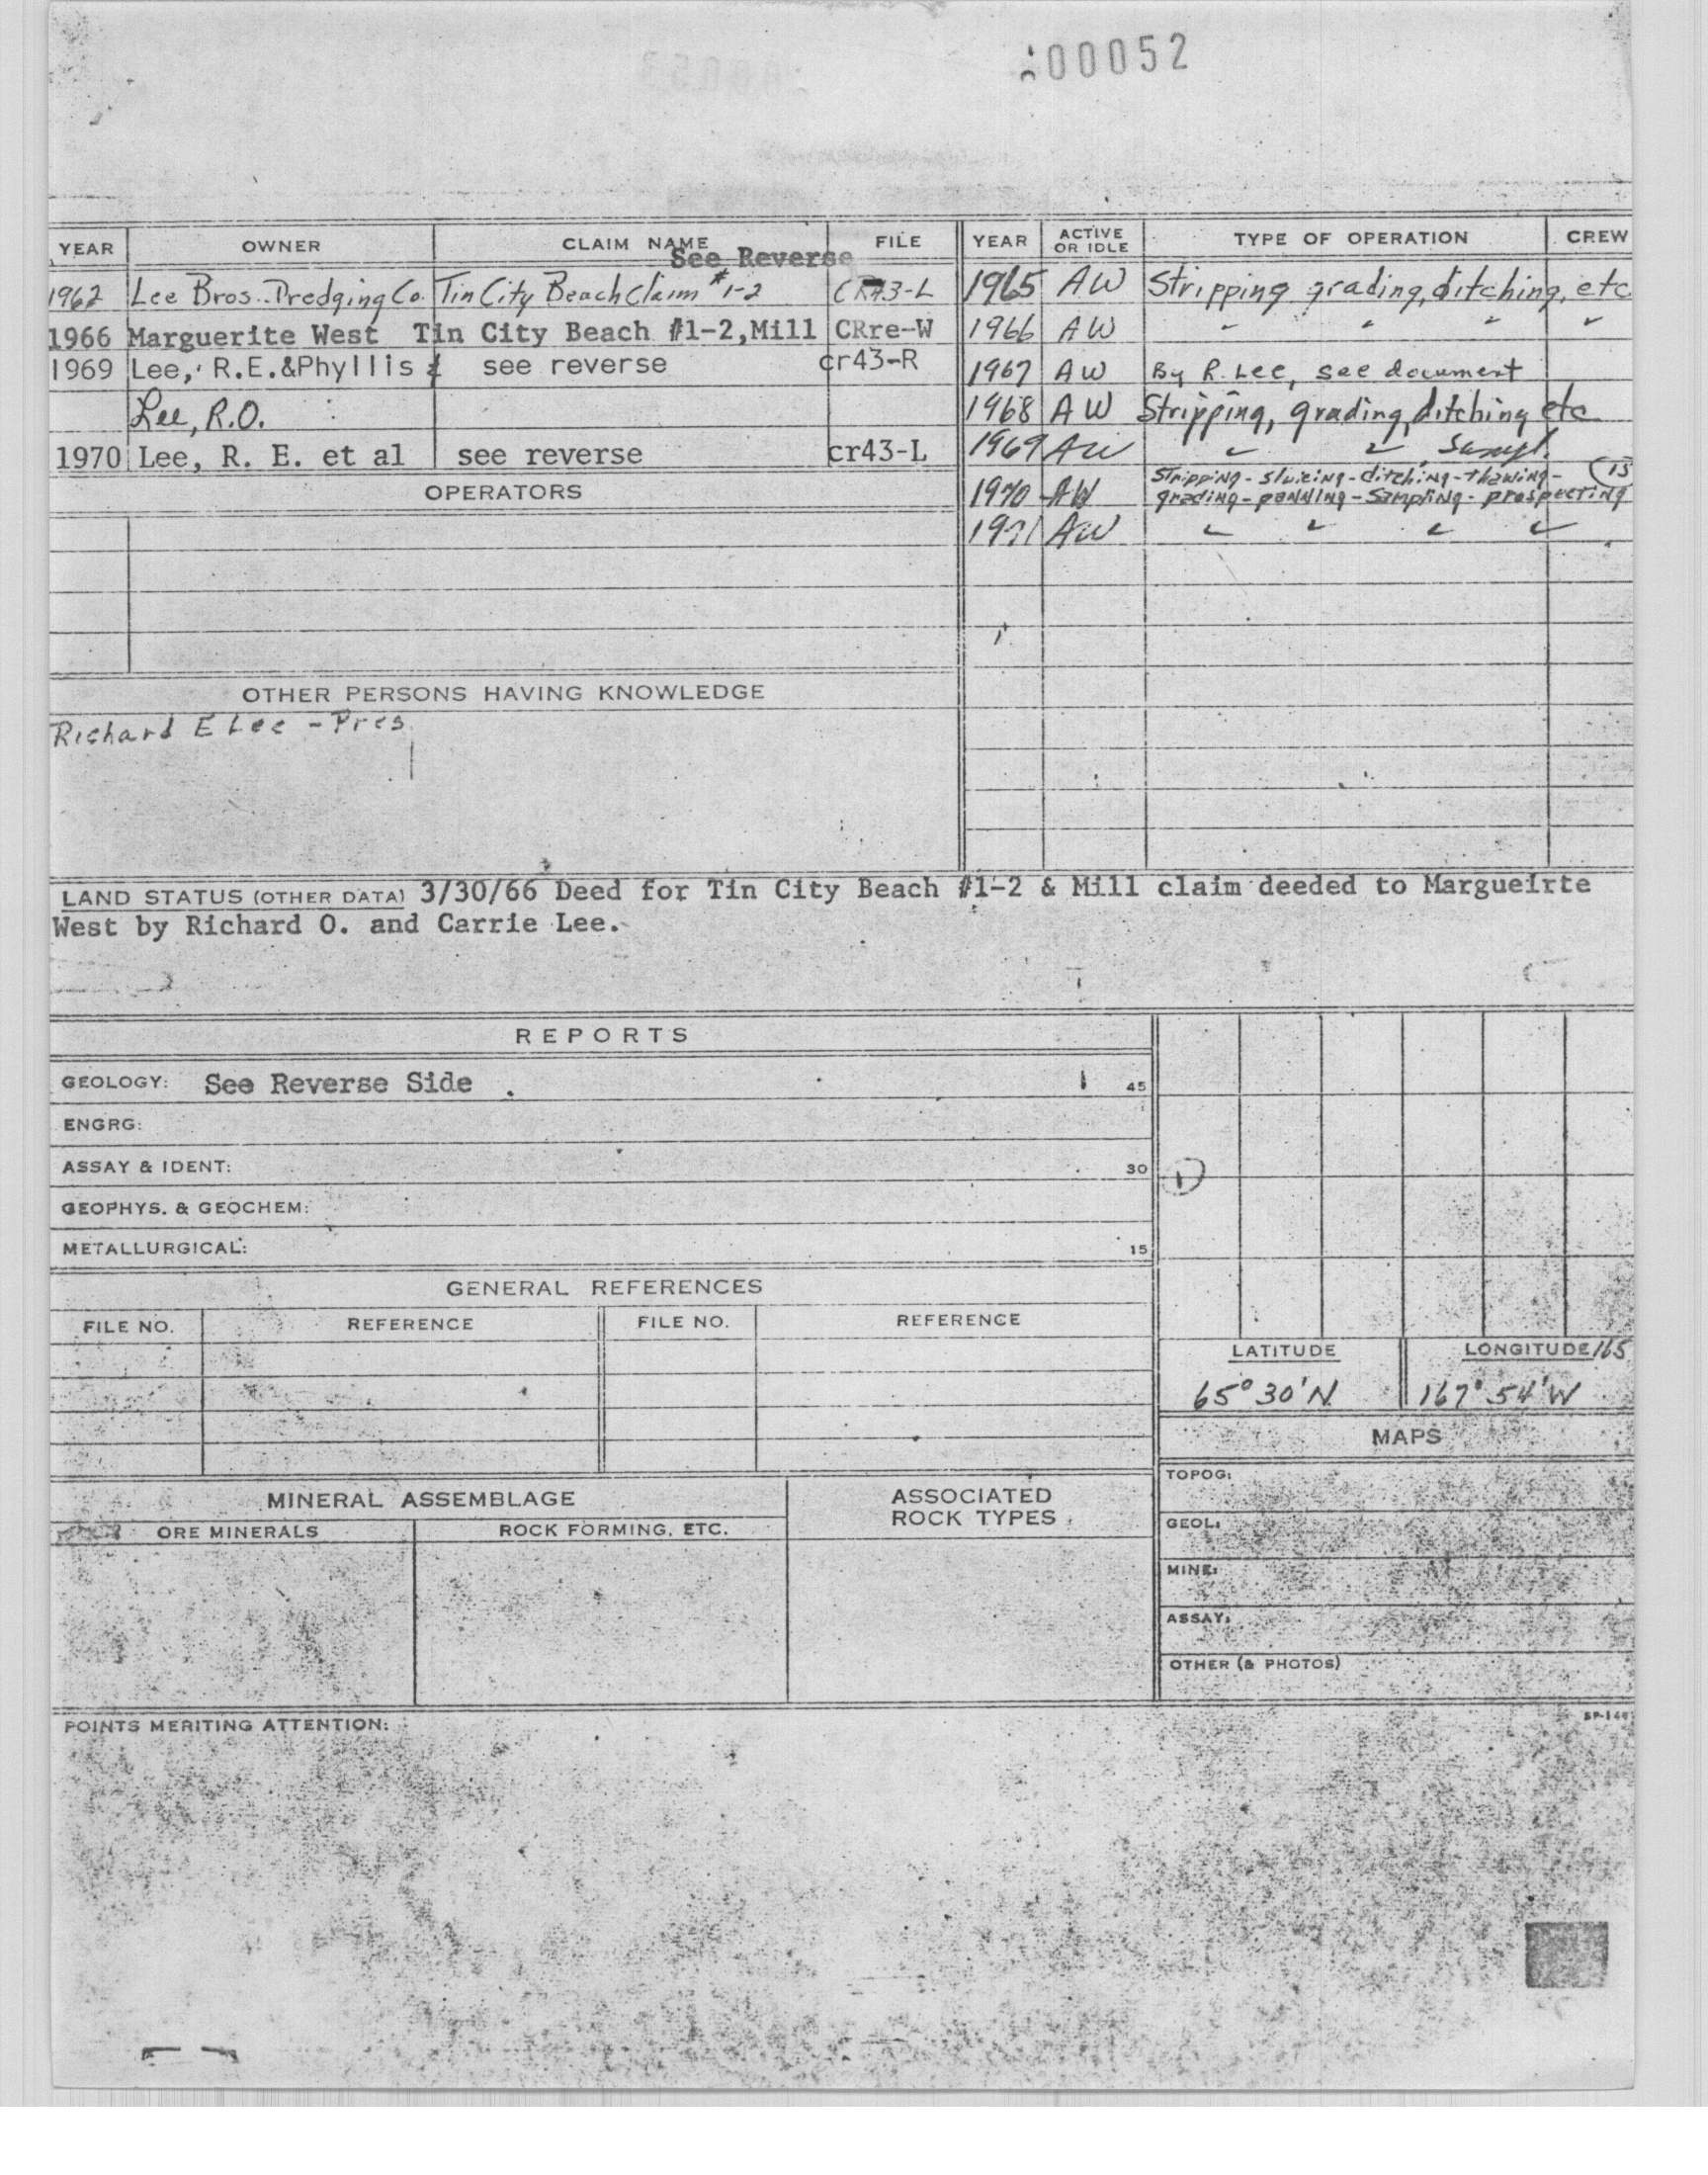 00052
YEAR OWNER CLAIM NAME FILE YEAR ACTIVE OR IDLE TYPE OF OPERATION CREW
See Reverse
1962 Lee Bros. Dredging Co. Tin City Beach Claim #1-2 CR43-L 1965 AW Stripping grading, ditching, etc
1966 Marguerite West Tin City Beach #1-2, Mill CRre-W 1966 AW " " " "
1969 Lee, R.E.&Phyllis & see reverse cr43-R 1967 AW By R. Lee, see document
Lee, R.O. 1968 AW Stripping, grading, ditching etc
1970 Lee, R. E. et al see reverse cr43-L 1969 AW " " Sampl.
OPERATORS 1970 AW Stripping - sluicing - ditching - thawing - 15
grading - panning - sampling - prospecting
1971 AW " " " "
OTHER PERSONS HAVING KNOWLEDGE
Richard E Lee - Pres
LAND STATUS (OTHER DATA) 3/30/66 Deed for Tin City Beach #1-2 & Mill claim deeded to Margueirte
West by Richard O. and Carrie Lee.
REPORTS
GEOLOGY: See Reverse Side . 45
ENGRG:
ASSAY & IDENT: 30
GEOPHYS. & GEOCHEM:
METALLURGICAL: 15
GENERAL REFERENCES
FILE NO. REFERENCE FILE NO. REFERENCE
LATITUDE LONGITUDE 165
65° 30' N 167° 54' W
MAPS
MINERAL ASSEMBLAGE ASSOCIATED ROCK TYPES
ORE MINERALS ROCK FORMING, ETC.
TOPOG:
GEOL:
MINE:
ASSAY:
OTHER (& PHOTOS)
POINTS MERITING ATTENTION: